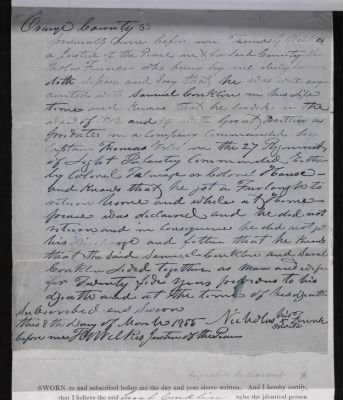 Orange County SS
personally Came before me Thomas J Wilkes
a Justice of the Peace in & for Said County
who being by me duly
doth depose and Say that he was well acq
uainted with Samuel Conklin in his life
time and knows that he Served in the
war of 1812 and 14 with Great Brittan as
a private in a Company Commanded by
Captain Thomas in the 27 Regiment
of Light Infantry Commanded Either
by Colonel Talmage or Colonel House
and knows that he got a Furlough to
return home and while at Home
peace was declared and he did not
return and in Consequence he did not get
his discharge and further that he knows
that the Said Samuel Conklin and Sarah
Conklin lived together as Man and wife
for Twenty five years previous to his
Death and at the time of his Death
Subscribed and Sworn
this 8 the Day of March 1855 Nicholas his mark
before me T J Wilkes Justice of the Peace
SWORN to and subscribed before me the day and year above written. And I hereby certify,
that I believe the said Sarah Conklin to be the identical person